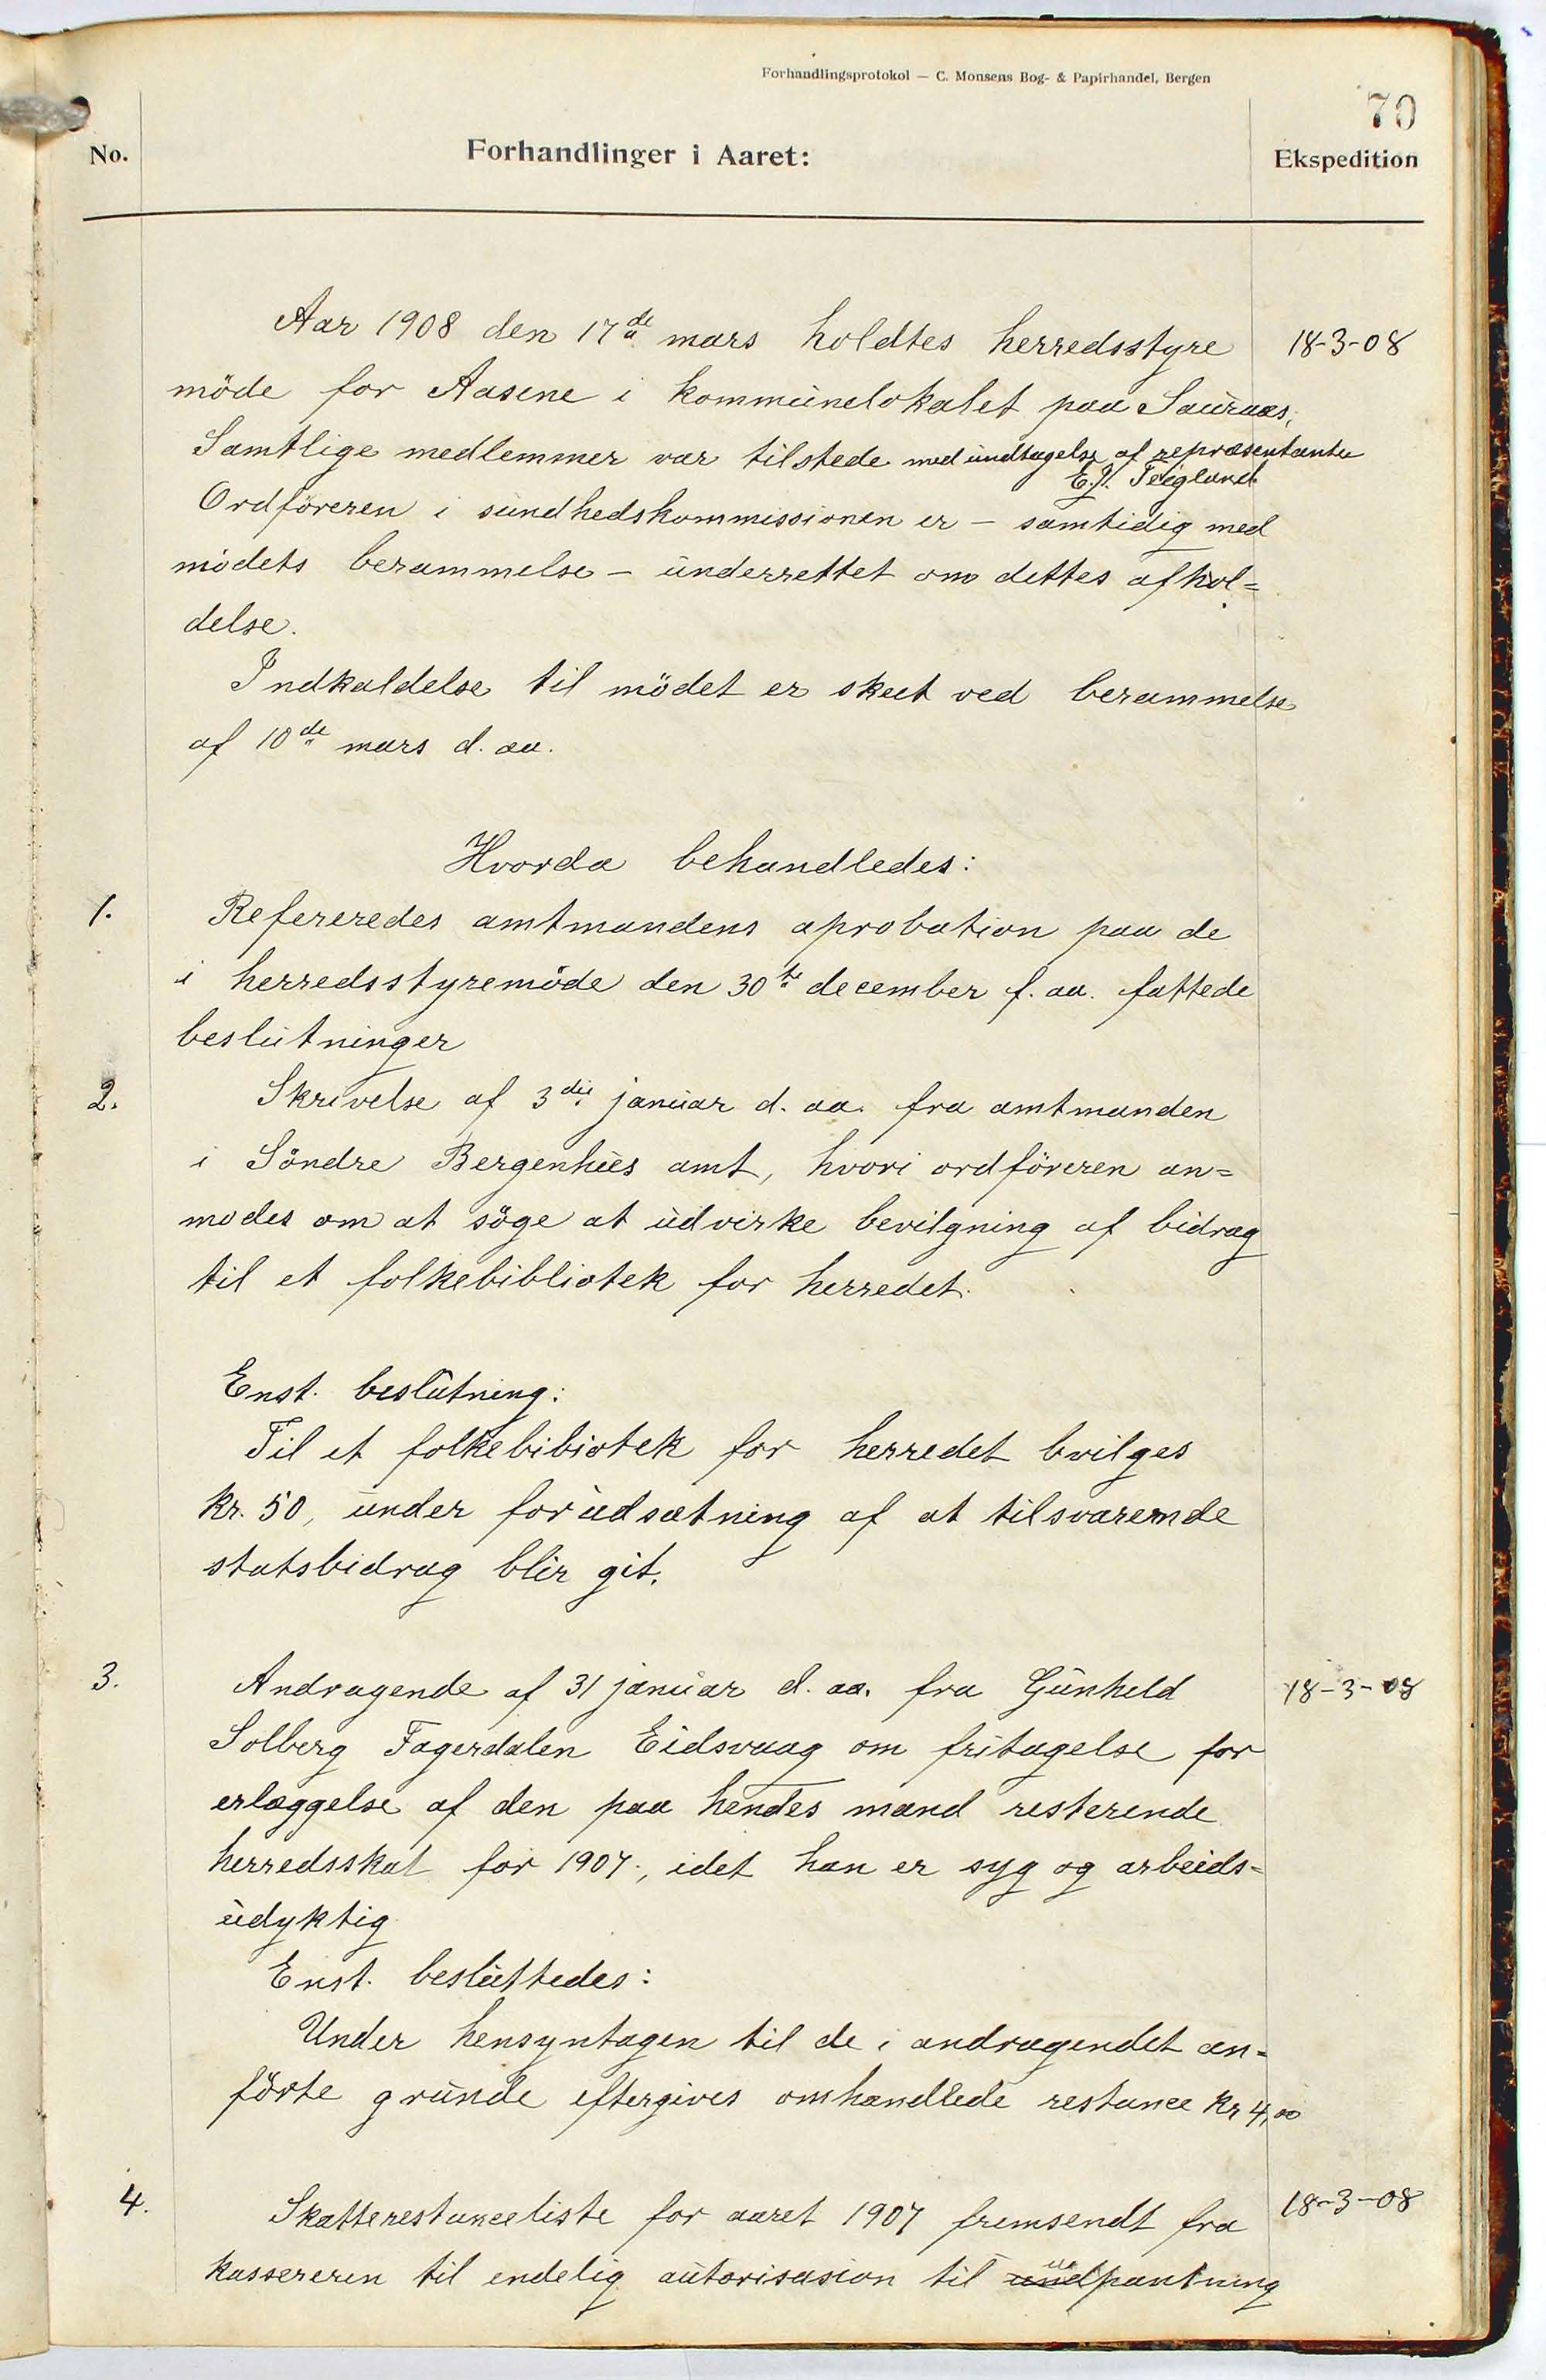 Forhandlingsprotokol — C. Monsens Bog- & Papirhandel, Bergen
70
No.
Forhandlinger i Aaret:
Ekspedition
Aar 1908 den 17de mars holdtes herredsstyre
18-3-08
möde for Aasene i kommunelokalet paa Sauraas,
Samtlige medlemmer var tilstede med undtagelse af repræsentanten
E. Teigland
Ordföreren i sundhedskommissionen er – samtidig med
mödets berammelse – underrettet om dettes afhol=
delse.
Indkaldelse til mödet er skeet ved berammelse
af 10de mars d. aa.
Hvorda behandledes:
1. Refereredes amtmandens aprobation paa de
i herredsstyremöde den 30te december f. aa. fattede
beslutninger
2. Skrivelse af 3die januar d. aa. fra amtmanden
i Söndre Bergenhus amt, hvori ordföreren an=
modes om at söge at udvirke bevilgning af bidrag
til et folkebibliotek for herredet.
Enst. beslutning:
Til et folkebibiotek for herredet bvilges
kr. 50, under forudsætning af at tilsvarende
statsbidrag blir git.
3. Andragende af 31 januar d. aa. fra Gunheld
18-3-08
Solberg Fagerdalen Eidsvaag om fritagelse for
erlæggelse af den paa hendes mand resterende
herredsskat for 1907, idet han er syg og arbeids=
udyktig
Enst. besluttedes:
Under hensyntagen til de i andragendet an=
förte grunde eftergives omhandlede restance kr 4,00
4. Skatterestanceliste for aaret 1907 fremsendt fra
18-3-08
kassereren til endelig autorisasion til udpantning